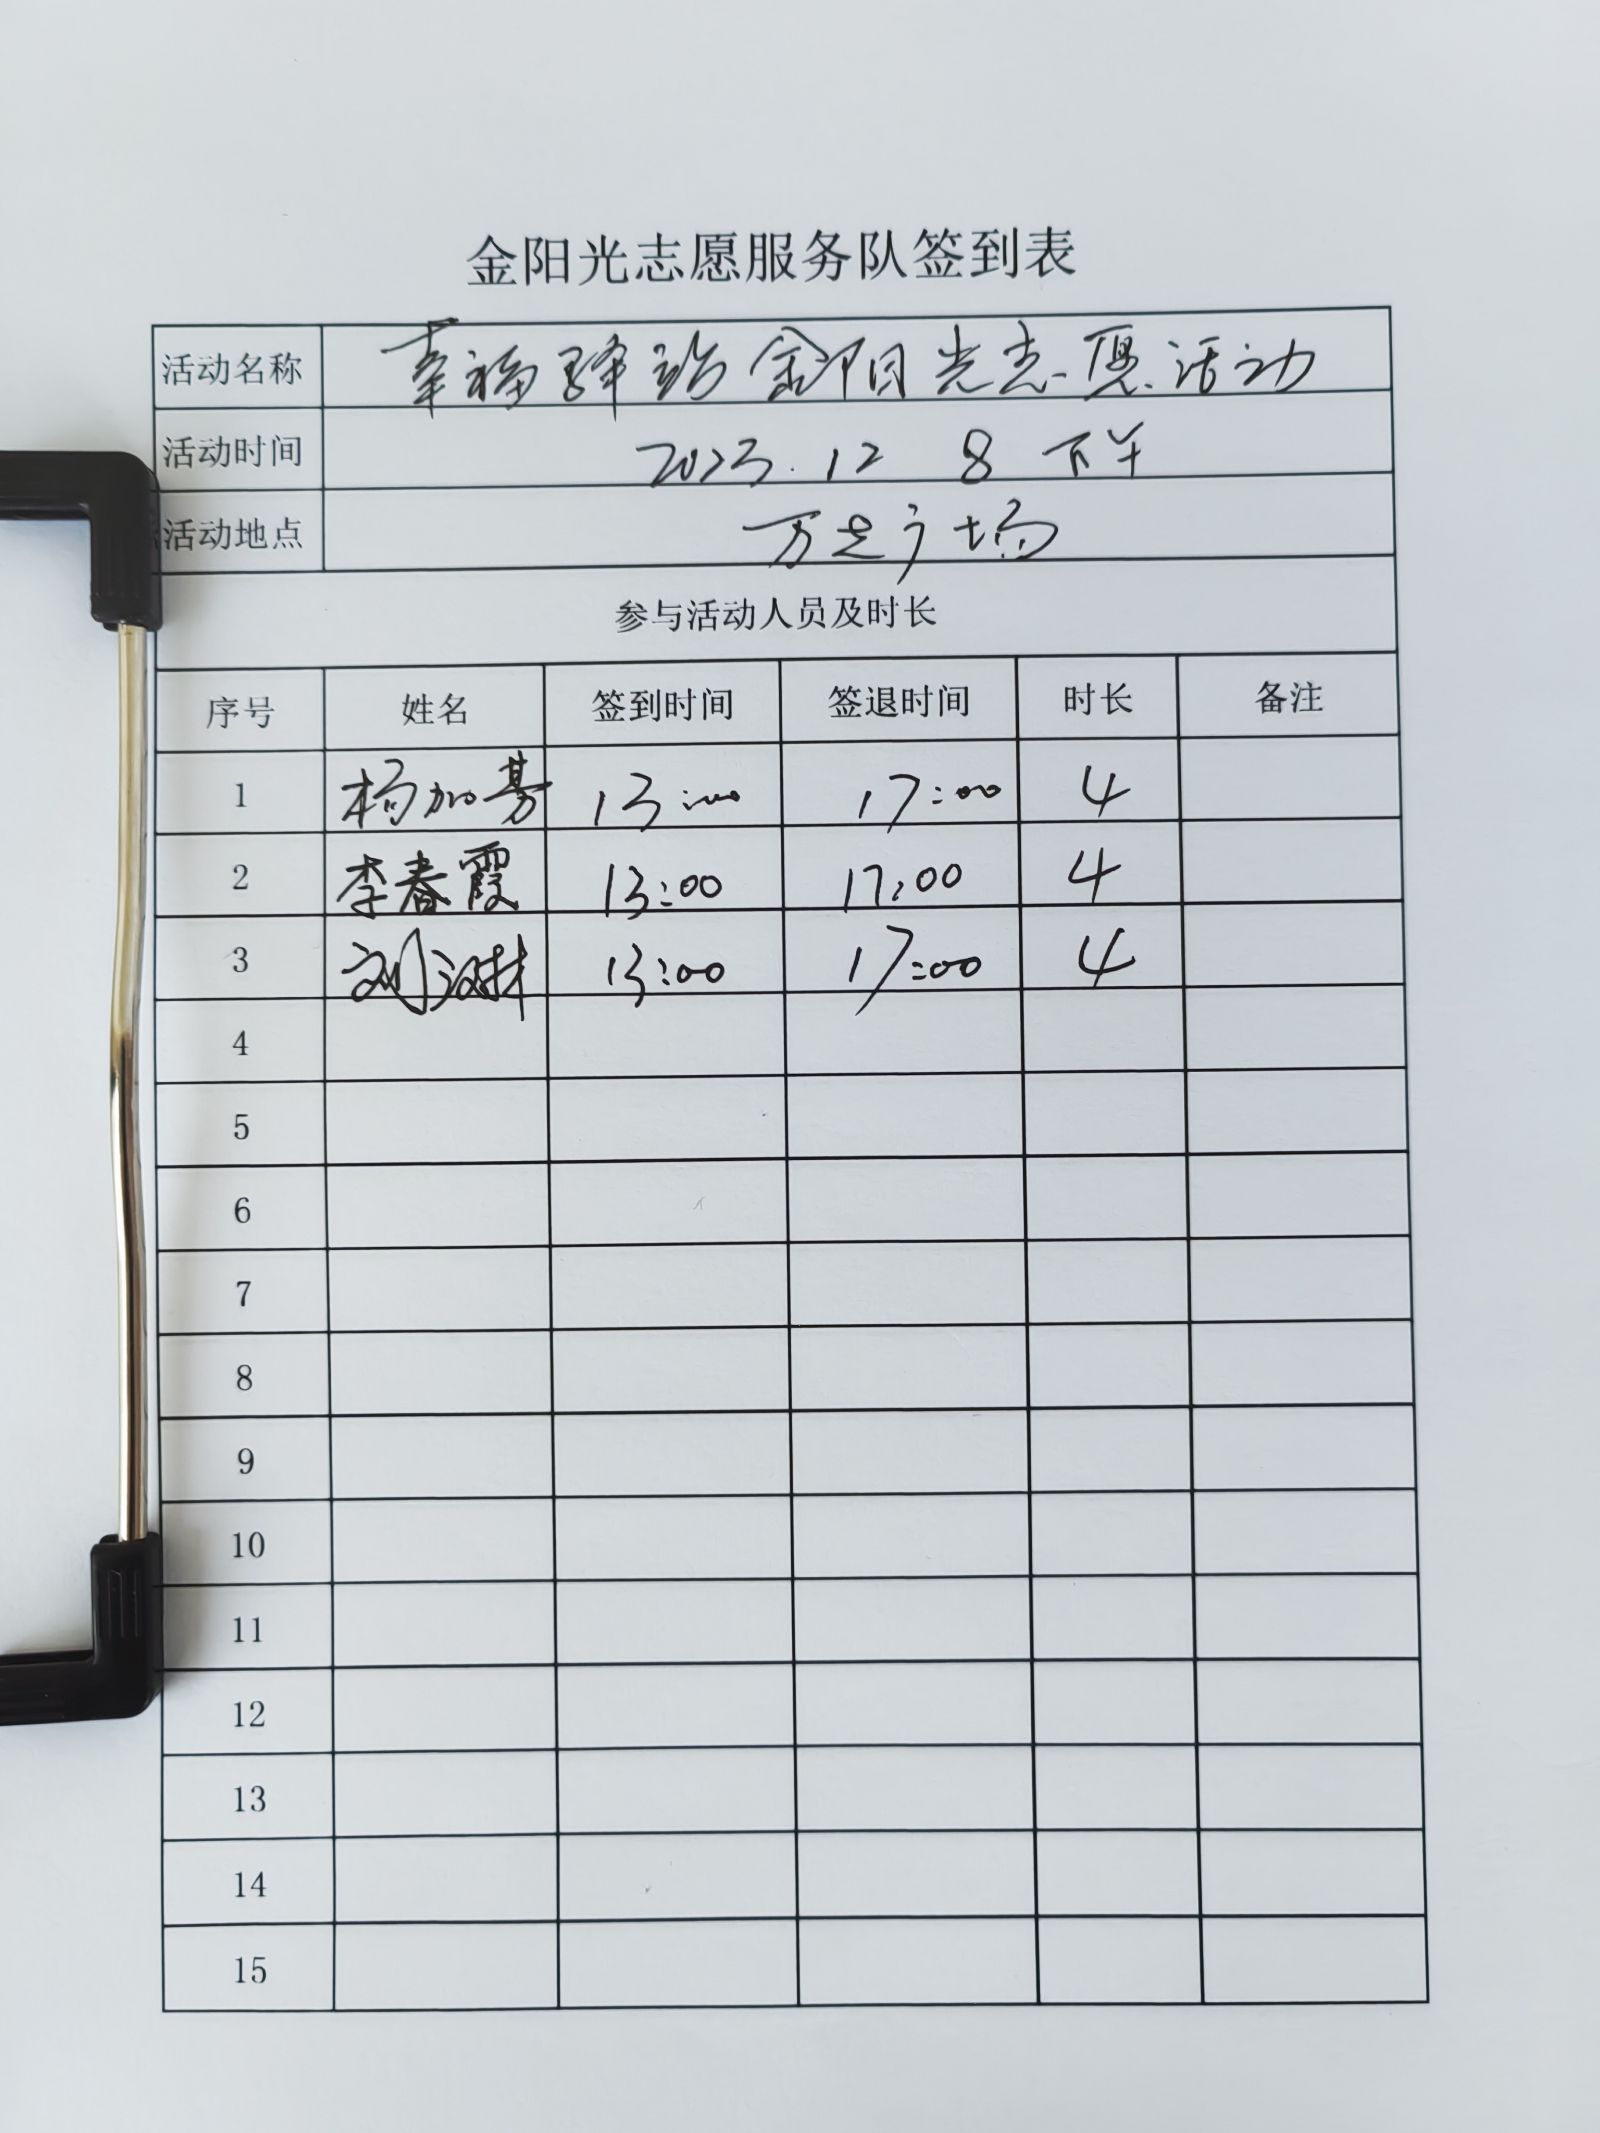 金阳光志愿服务队签到表
活动名称 幸福驿站金阳光志愿活动
活动时间 2023.12 8 下午
活动地点 万达广场
参与活动人员及时长
序号 姓名 签到时间 签退时间 时长 备注
1 杨加 13:00 17:00 4
2 李春霞 13:00 17:00 4
3 刘汉林 13:00 17:00 4
4
5
6
7
8
9
10
11
12
13
14
15